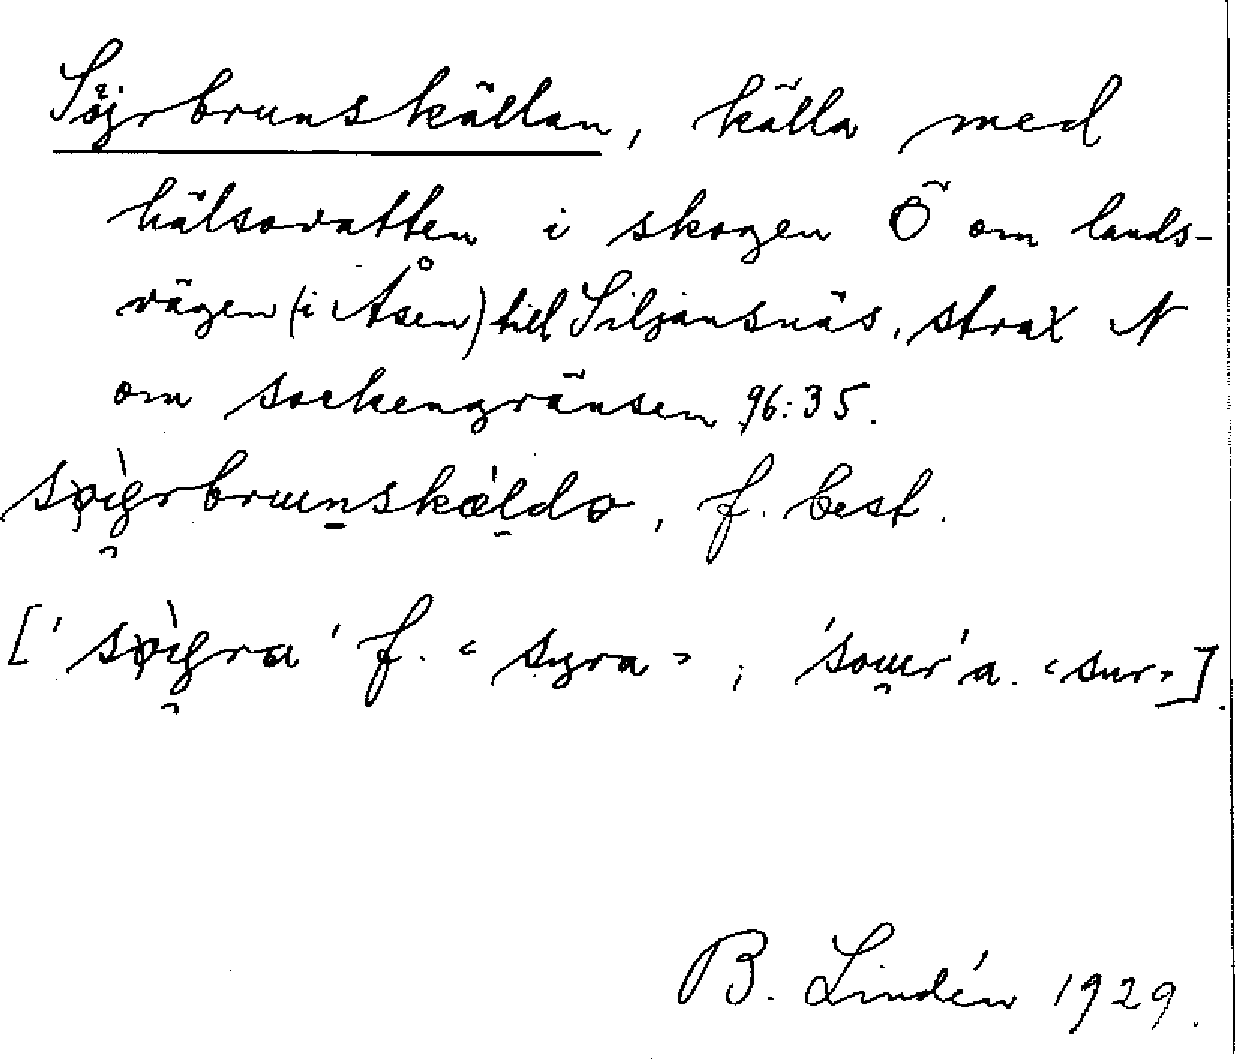 Söjrbrunskällan, källa med
hälsovatten i skogen Ö om lands-
vägen (i Åsen) till Siljansnäs, strax N
om sockengränsen 96:35.
sɷi̯grbrunskäldo, f. best.
['sɷi̯gra' f. "syra"; 'sour' a. "sur"].
B. Lindén 1929.